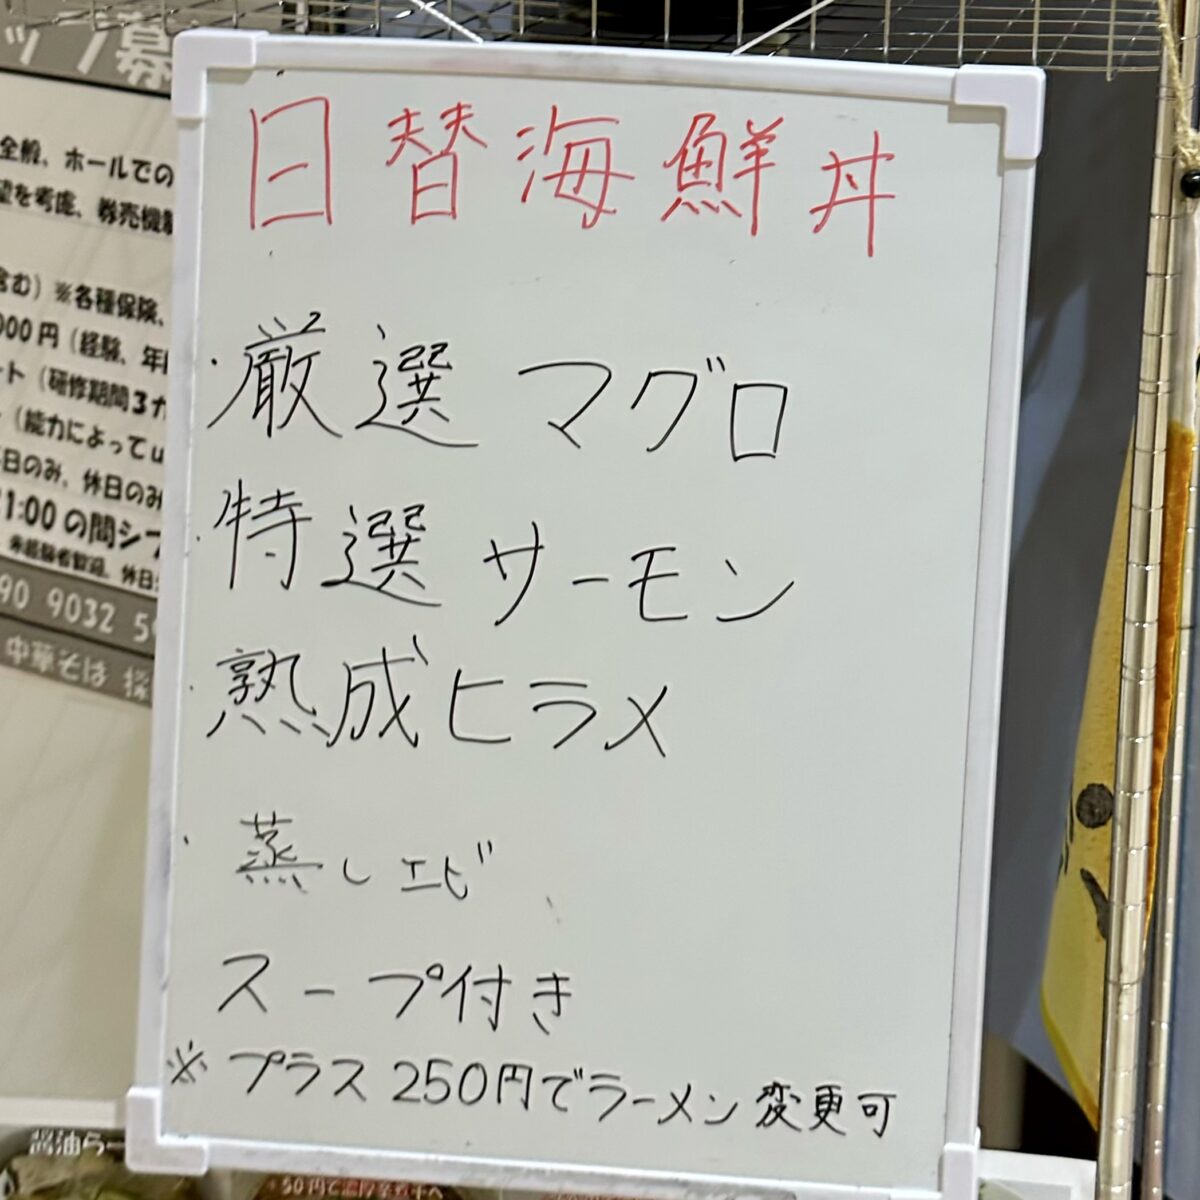 日替海鮮丼
・厳選マグロ
・特選サーモン
・熟成ヒラメ
・蒸しエビ
スープ付き
※プラス250円でラーメン変更可
全般、ホールでの
望を考慮、券売機
含む)※各種保険、
000円(経験、年
ート(研修期間3カ
(能力によって
日のみ、休日のみ
1:00の間シフ
未経験者歓迎、休日
90 9032 5
中華そば 採
醤油らー
50円で濃厚